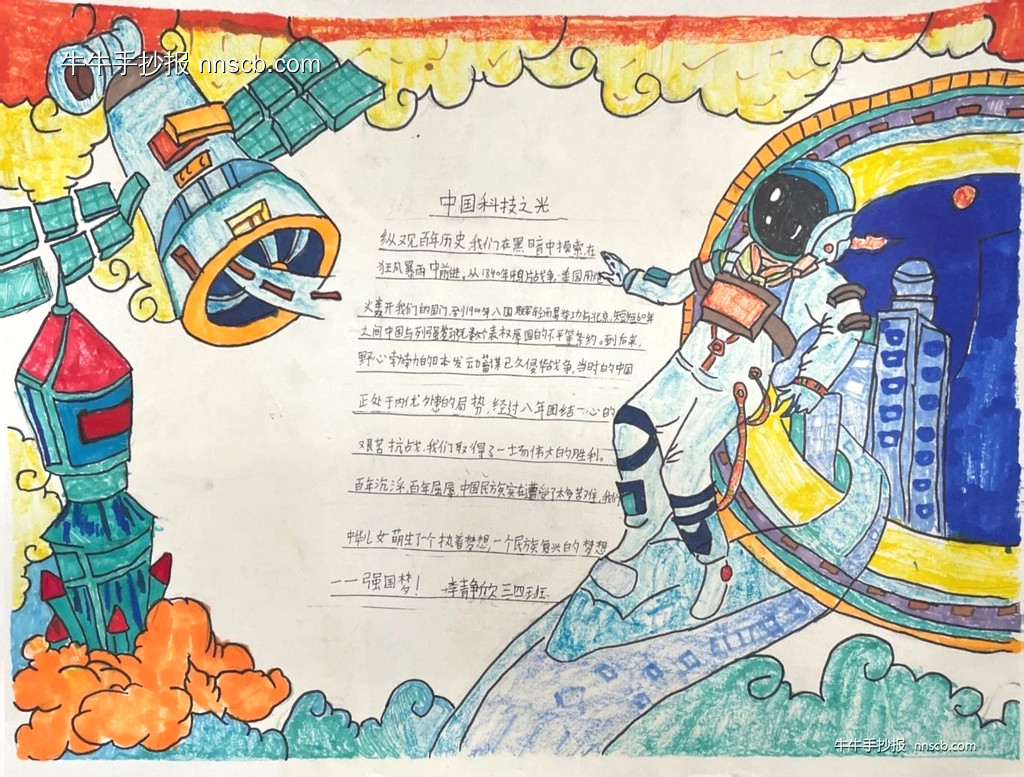 牛牛手抄报 nnscb.com
中国科技之光
纵观百年历史,我们在黑暗中摸索,在
狂风暴雨中前进。从1840年鸦片战争,英国用
火轰开我们的国门,到1900年八国联军轻而易举攻占北京,短短60年
之间中国与列强签订无数个丧权辱国的不平等条约。到后来,
野心勃勃的日本发动蓄谋已久侵华战争,当时的中国
正处于内忧外患的局势,经过八年团结一心的
艰苦抗战,我们取得了一场伟大的胜利。
百年沉浮,百年屈辱,中国民族实在遭受了太多苦难,我们
中华儿女萌生了一个执着梦想,一个民族复兴的梦想
——强国梦! 李静欣 三四班
牛牛手抄报 nnscb.com